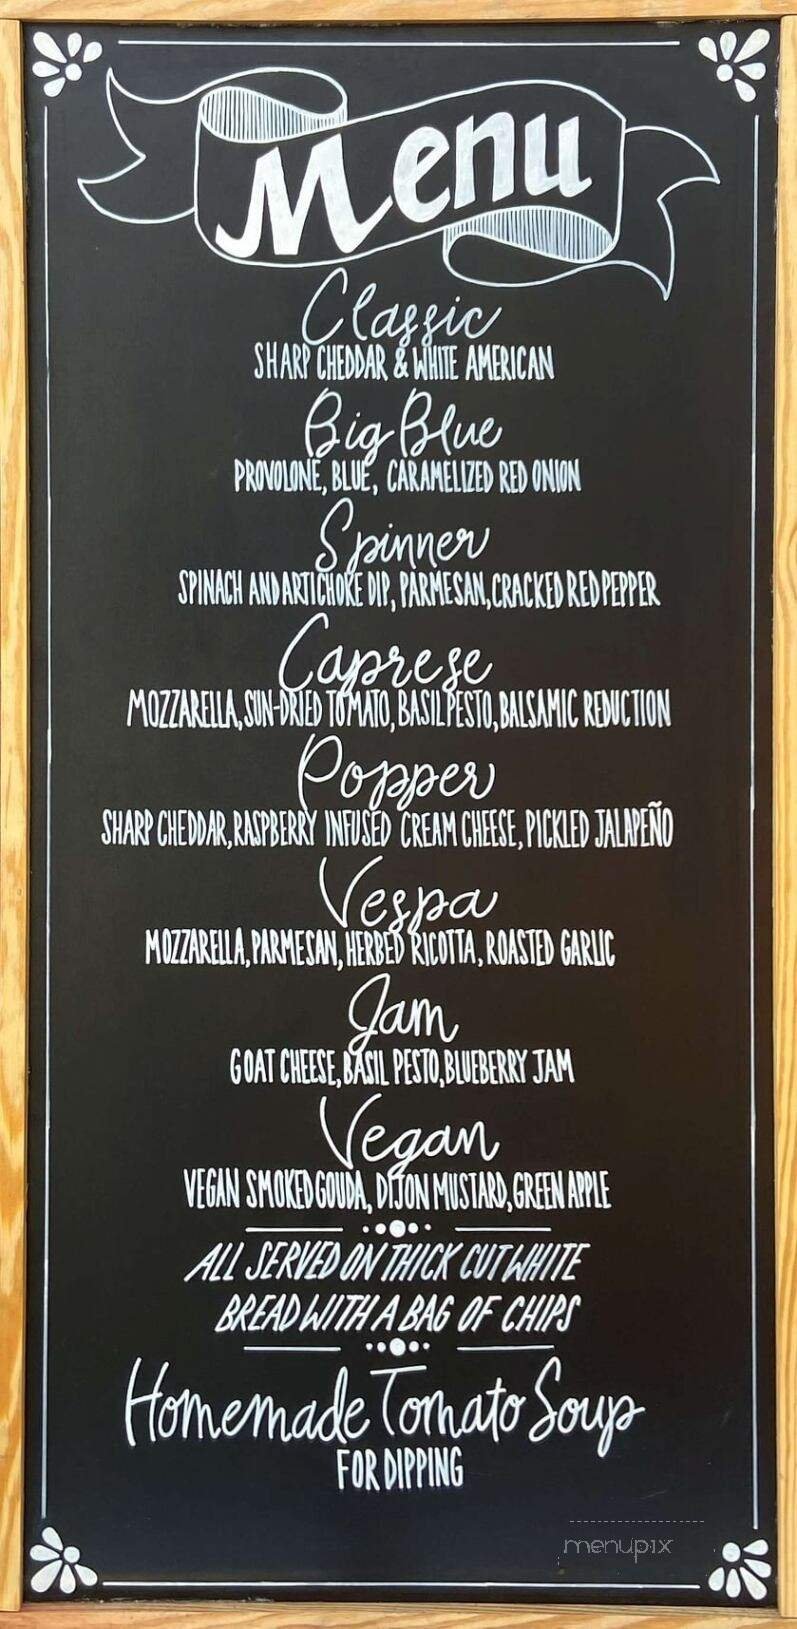 Menu
Classic
SHARP CHEDDAR & WHITE AMERICAN
Big Blue
PROVOLONE, BLUE, CARAMELIZED RED ONION
Spinner
SPINACH AND ARTICHOKE DIP, PARMESAN, CRACKED RED PEPPER
Caprese
MOZZARELLA, SUN-DRIED TOMATO, BASIL PESTO, BALSAMIC REDUCTION
Popper
SHARP CHEDDAR, RASPBERRY INFUSED CREAM CHEESE, PICKLED JALAPEÑO
Vespa
MOZZARELLA, PARMESAN, HERBED RICOTTA, ROASTED GARLIC
Jam
GOAT CHEESE, BASIL PESTO, BLUEBERRY JAM
Vegan
VEGAN SMOKED GOUDA, DIJON MUSTARD, GREEN APPLE
ALL SERVED ON THICK CUT WHITE
BREAD WITH A BAG OF CHIPS
Homemade Tomato Soup
FOR DIPPING
menupix